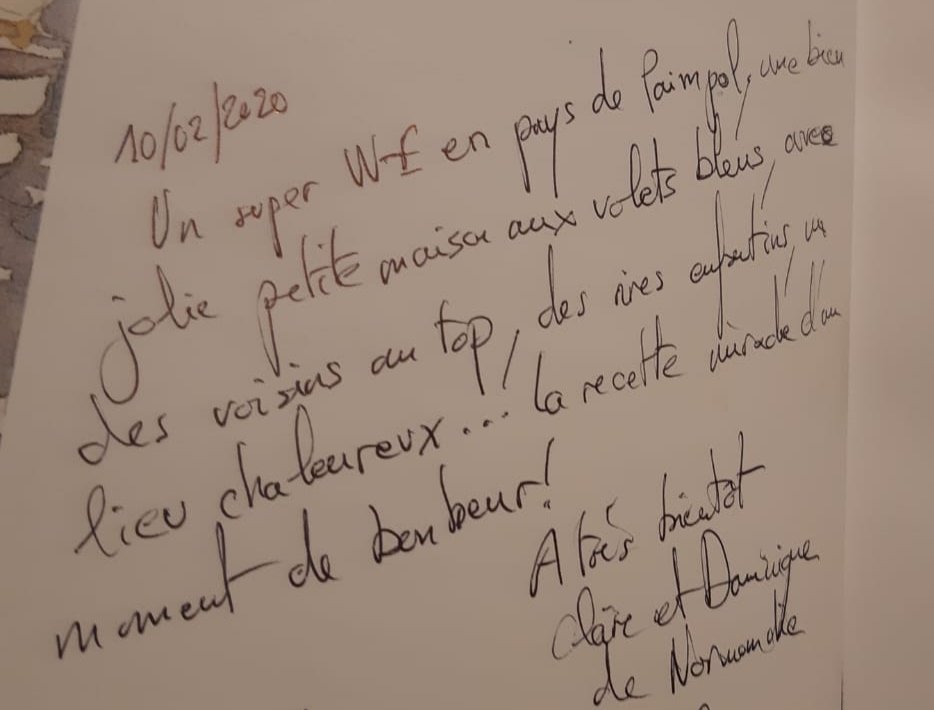 10/02/2020
Un super W-E en pays de Paimpol, une bien
jolie petite maison aux volets bleus, avec
des voisins au top, des rires enfantins, un
lieu chaleureux... la recette miracle d'un
moment de bonheur!
A très bientôt
Claire et Dominique
de Normandie